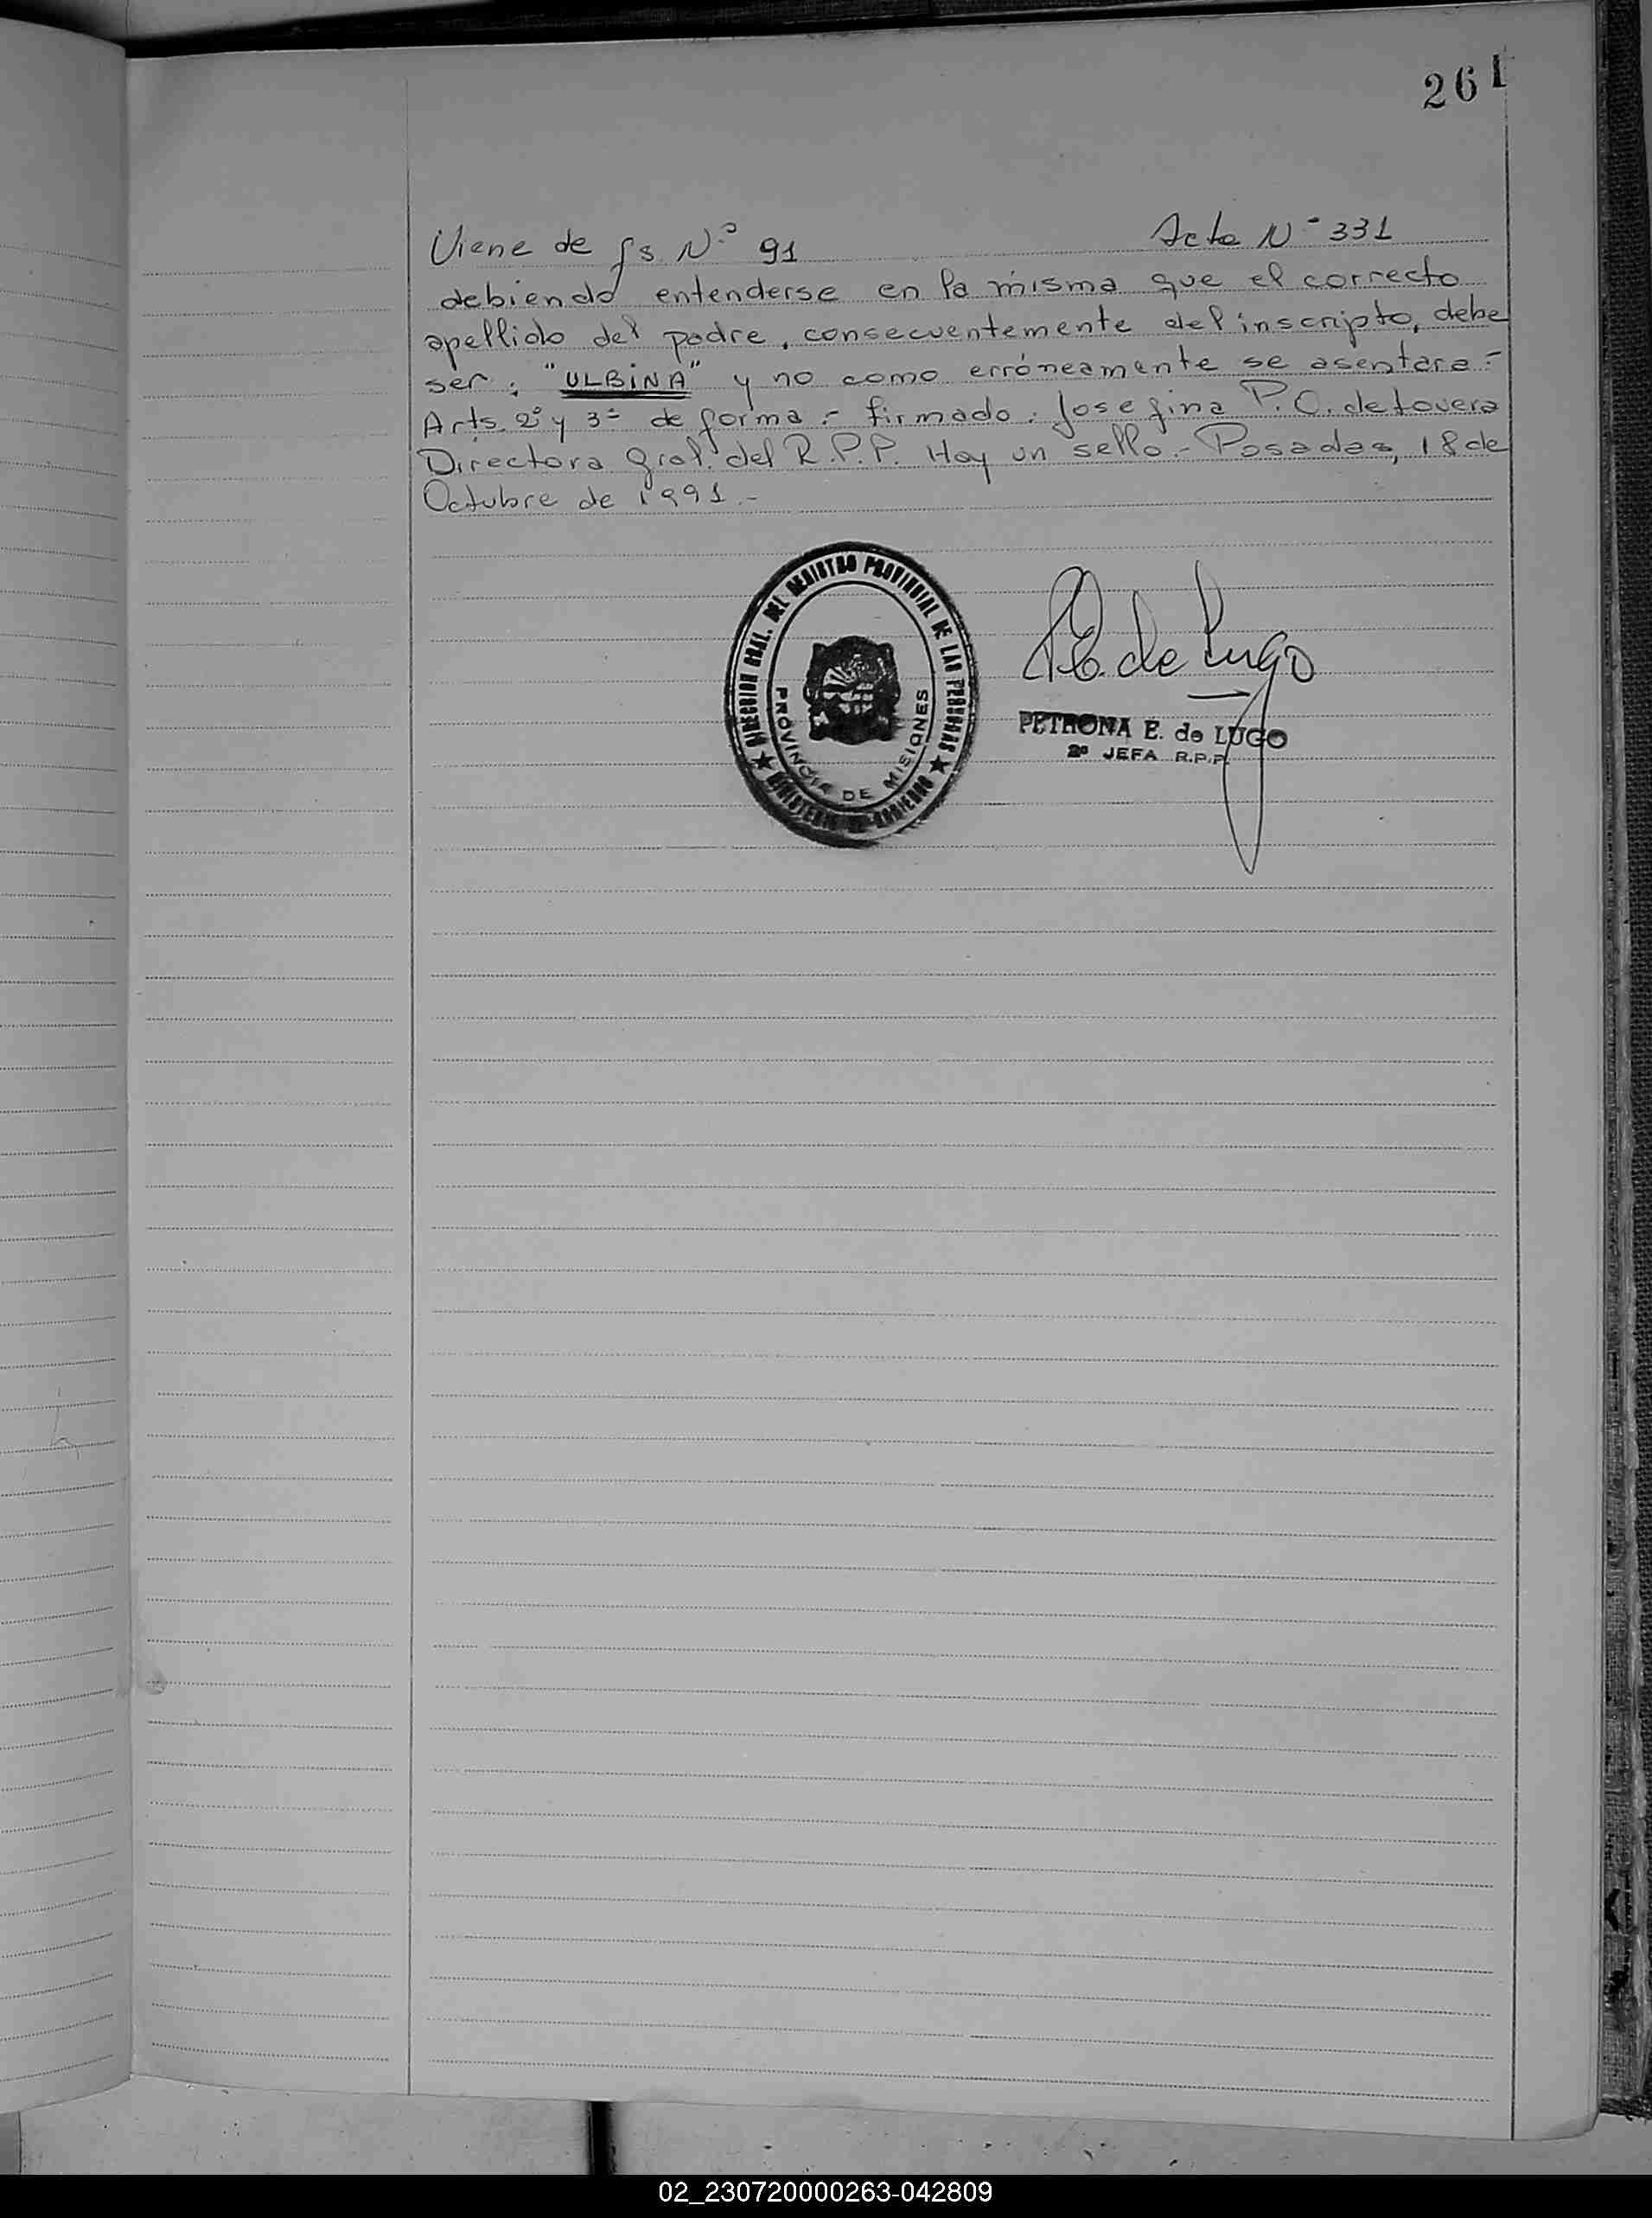 261
Viene de fs. N.º 91 Acta Nº 331
debiendo entenderse en la misma que el correcto
apellido del padre, consecuentemente del inscripto, debe
ser: "ULBINA" y no como erróneamente se asentara.-
Arts. 2º y 3º de forma.- firmado: Josefina P. O. de Tovera
Directora Gral. del R.P.P. Hay un sello.- Posadas, 18 de
Octubre de 1991.-
DIRECCION GRAL. DEL REGISTRO PROVINCIAL DE LAS PERSONAS
MINISTERIO DE GOBIERNO
PROVINCIA DE MISIONES
P.E. de Lugo
PETRONA E. de LUGO
2ª JEFA R.P.P.
02_230720000263-042809